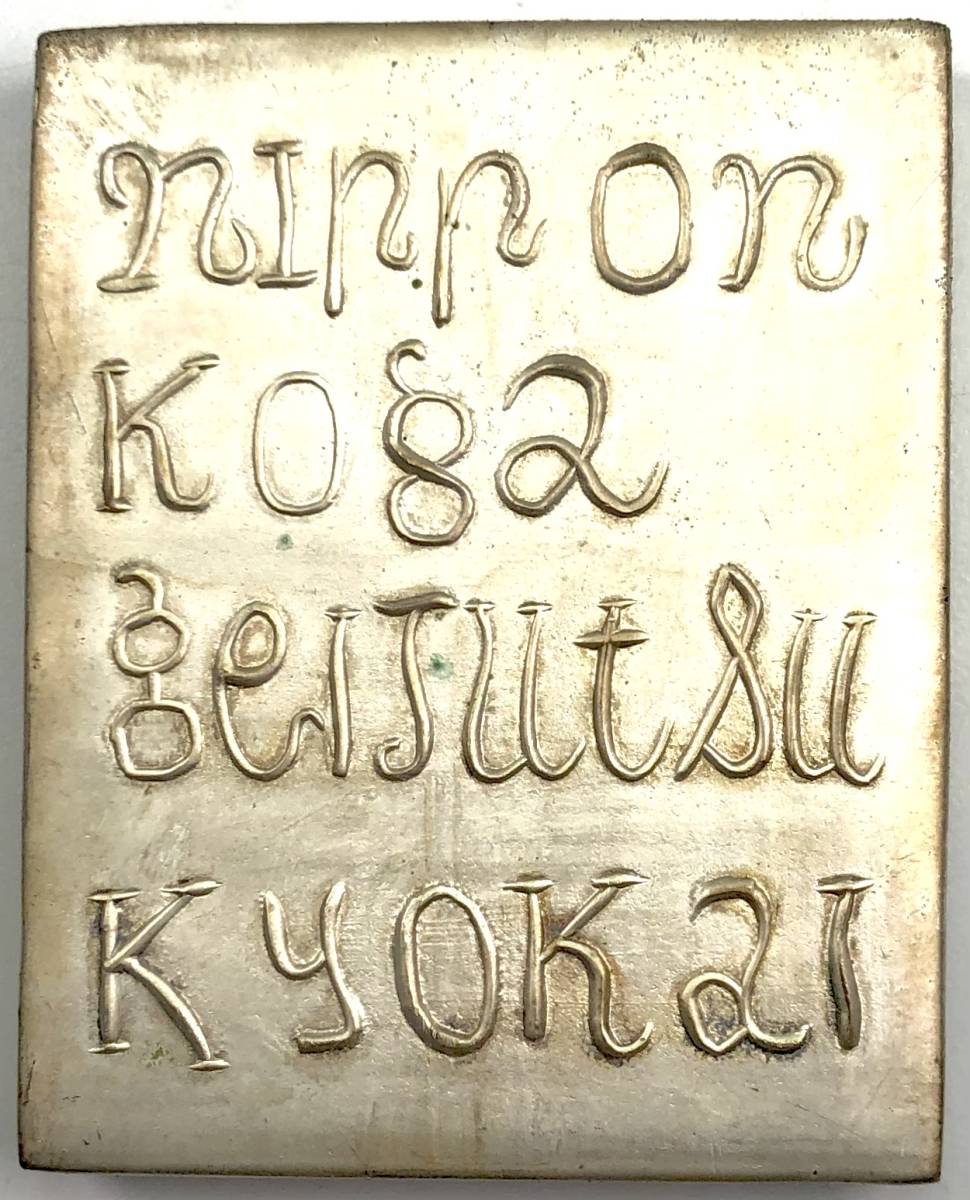 nIppon
Koga
geIJutsu
KyoKaI